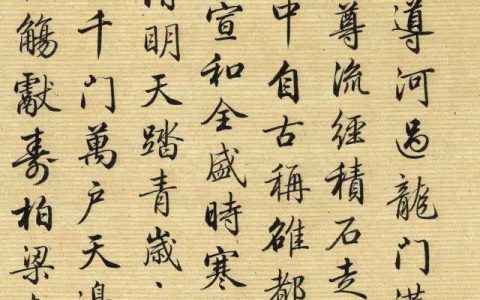 導河過龍門
尊流經積石走
中自古稱雄都
宣和全盛時寒
明天踏青歲
千門萬戶天
觴獻壽柏梁